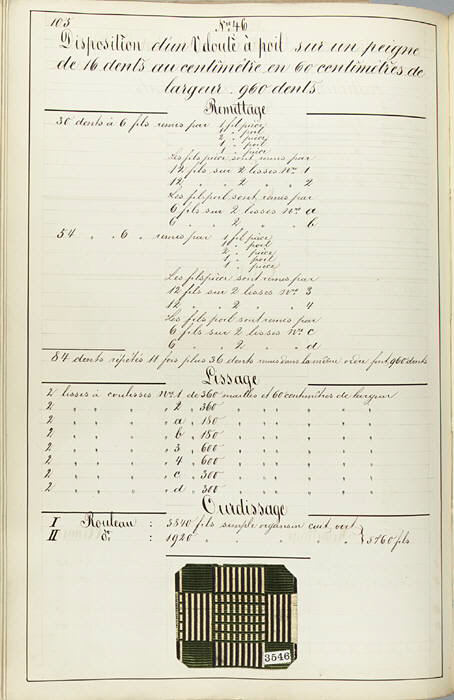 105
N° 46
Disposition d'un Velouté à poil sur un peigne
de 16 dents au centimètre en 60 centimètres de
largeur 960 dents
Remettage
30 dents à 6 fils remis par 1 fil pièce
1 " poil
2 " pièce
1 " poil
1 " pièce
Les fils pièce sont remis par
12 fils sur 2 lisses N° 1
12 " " 2 " " 2
Les fils poil sont remis par
6 fils sur 2 lisses N° a
6 " " 2 " " b
54 " " 6 " remis par 1 fil pièce
1 " poil
2 " pièce
1 " poil
1 " pièce
Les fils pièce sont remis par
12 fils sur 2 lisses N° 3
12 " " 2 " " 4
Les fils poil sont remis par
6 fils sur 2 lisses N° c
6 " " 2 " " d
84 dents répétés 11 fois plus 36 dents remis dans le même ordre font 960 dents
Lissage
2 lisses à coulisses N° 1 de 360 mailles et 60 centimètres de largeur
2 " " " 2 " 360 " " " " " "
2 " " " a " 180 " " " " " "
2 " " " b " 180 " " " " " "
2 " " " 3 " 600 " " " " " "
2 " " " 4 " 600 " " " " " "
2 " " " c " 300 " " " " " "
2 " " " d " 300 " " " " " "
Ourdissage
I Rouleau : 3840 fils simple organsin cuit vert
II d° : 1920 " " " " " } 5760 fils
3546